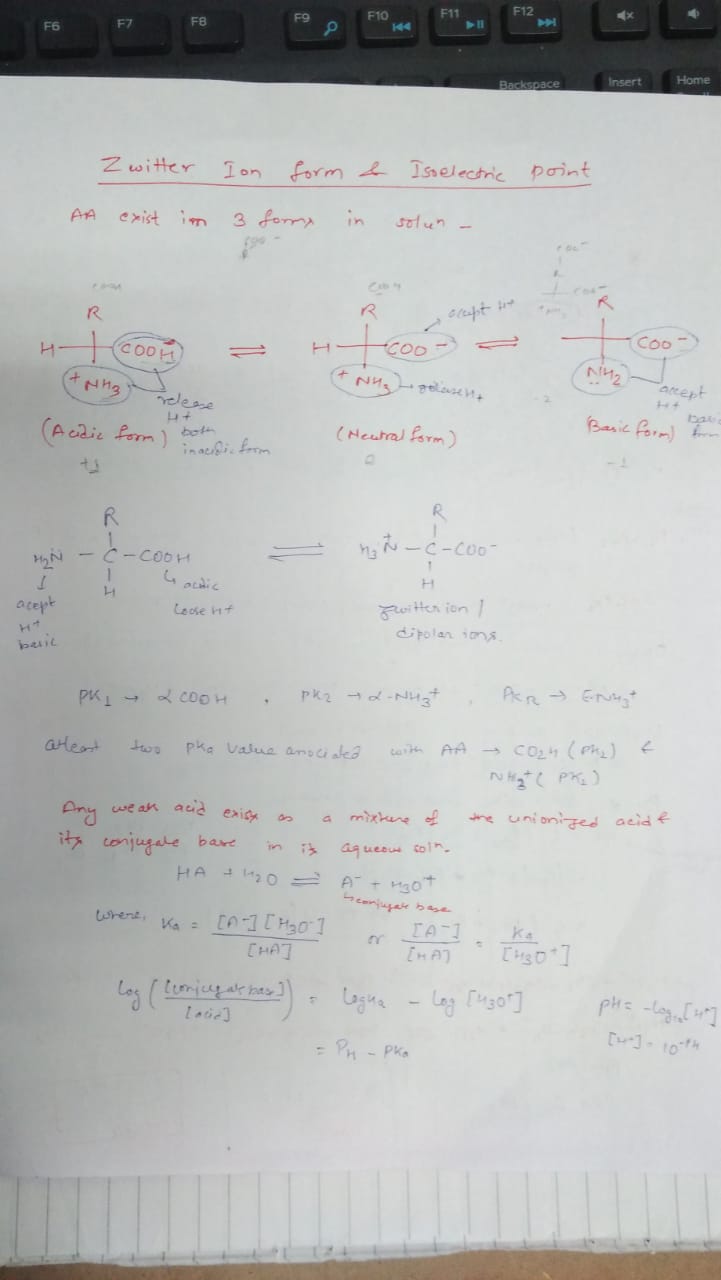 F6 F7 F8 F9 F10 F11 F12
Backspace Insert Home
Zwitter Ion form & Isoelectric point
AA exist im 3 forms in solun -
R
H COOH
+NH3
release
H+
both
in acidic form
(Acidic form)
+1
⇌
R
H COO-
+NH3
acept H+
(Neutral form)
0
⇌
R
COO-
NH2
accept
H+
(Basic form)
-1
R
H2N - C - COOH
H
acept
H+
basic
acidic
loose H+
⇌
R
H3N+ - C - COO-
H
zwitter ion /
dipolar ions.
PK1 → α COOH , PK2 → α-NH3+ , PKR → E-NH3+
atleast two pKa value associated with AA → CO2H (PK1) &
NH3+ (PK2)
Any weak acid exists as a mixture of the unionized acid &
its conjugate base in its aqueous soln.
HA + H2O ⇌ A- + H3O+
↳conjugate base
where, Ka = [A-] [H3O+] / [HA] or [A-] / [HA] = Ka / [H3O+]
log ([conjugate base] / [acid]) = logKa - log [H3O+] pH = -log10[H+]
= PH - PKa [H+] = 10-PH